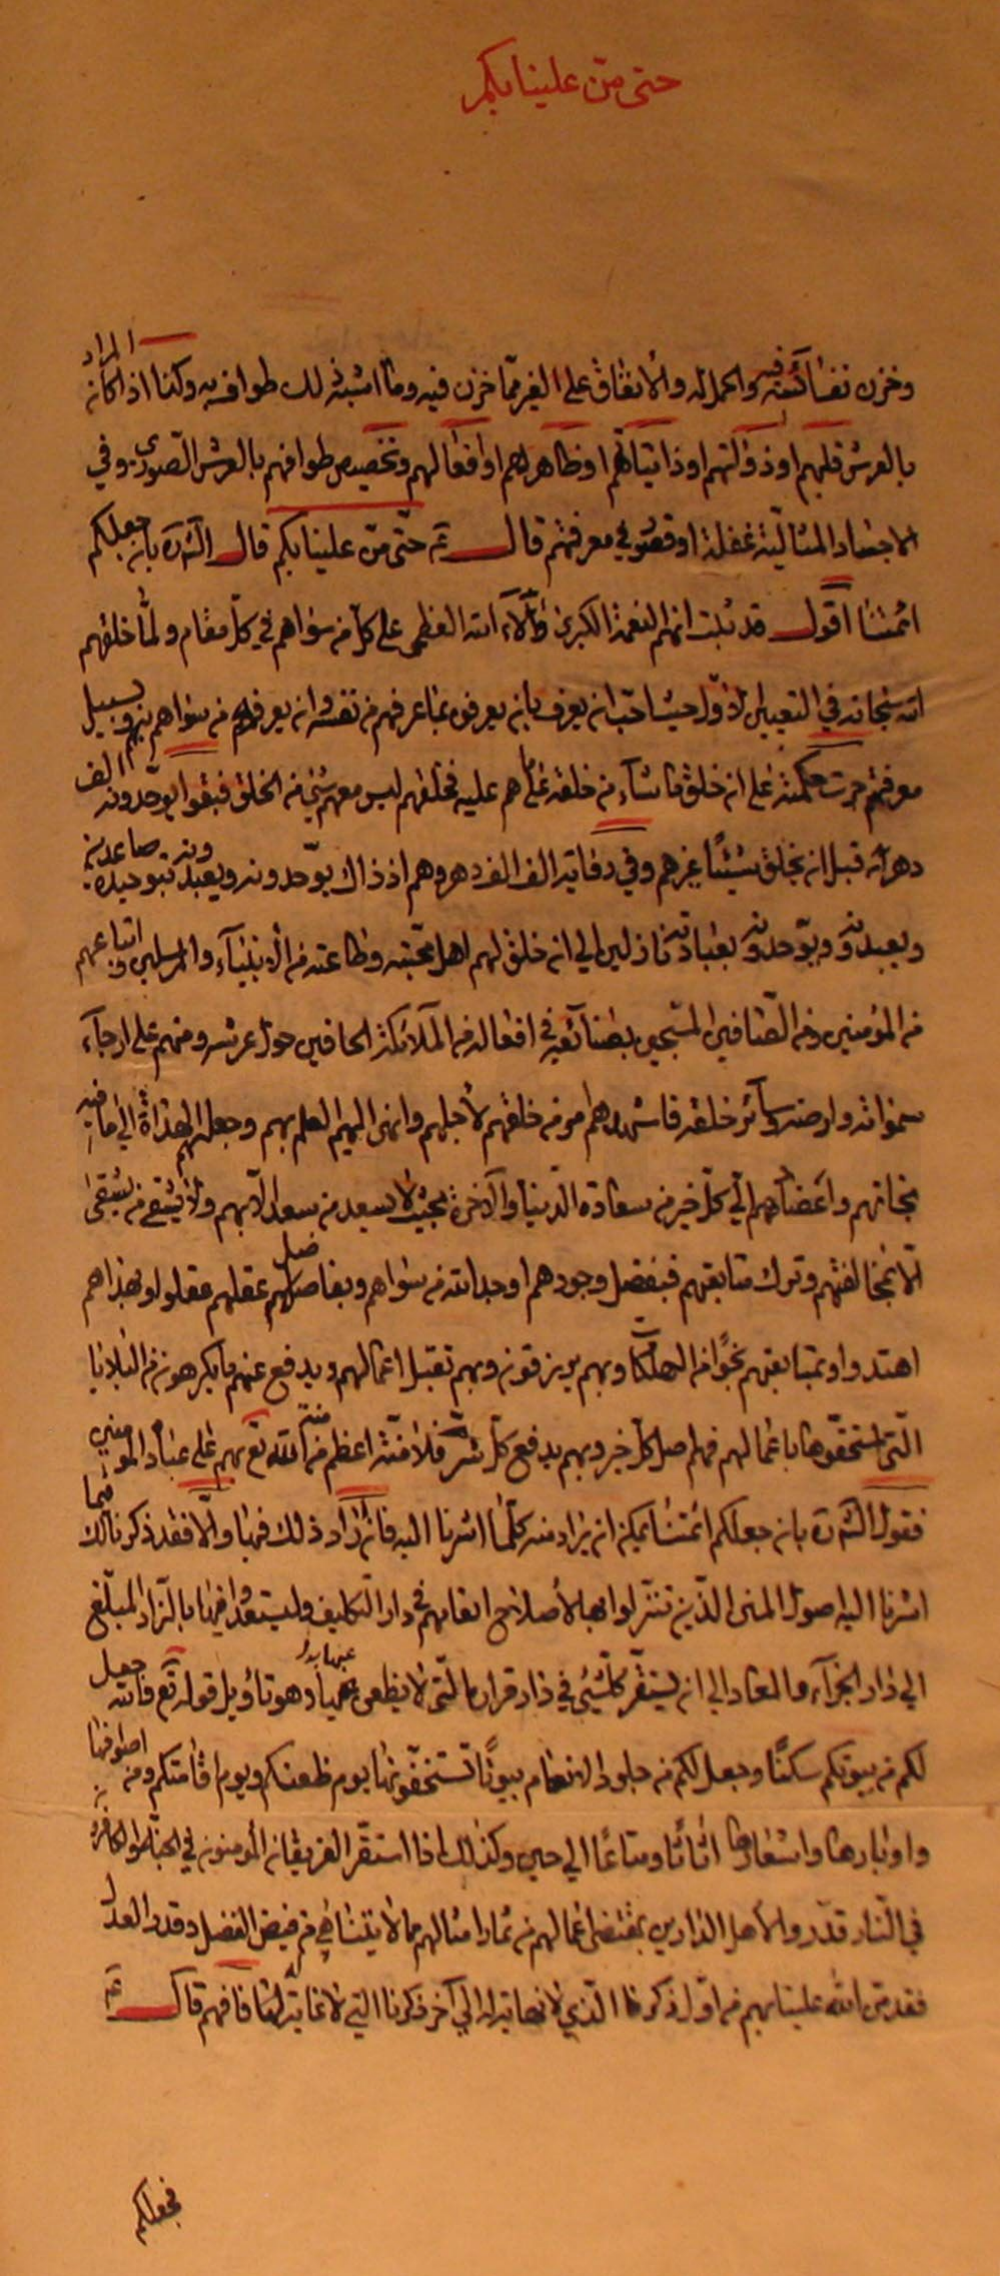 حتى منّ علينا بكم
وخزن نفائسه فيه والحمل له والانفاق على الغير ممّا خزن فيه وما اشبه ذلك طوافه به وكذا اذا كان المراد
بالعرش قلبهم او ذواتهم او ذاتياتهم او ظاهرهم او افعالهم وتخصيص طوافهم بالعرش الصّوري وفي
الاجساد المثاليّة غفلة او قصور في معرفتهم قال ع حتّى منّ علينا بكم قال الشره بان جعلكم
ائمتنا اقول قد ثبت انهم النعمة الكبرى وآلاء الله العظمى على كلّ من سواهم في كلّ مقام ولمّا خلقهم
الله سبحانه في التعيين الاوّل حيث احبّ ان يعرف بان يعرفوه بما عرفهم من نفسه وان يعرفهم من سواهم بهم وبسبيل
معرفتهم جرت حكمته على ان خلق ما شاء من خلقه على ما هم عليه فخلقهم ليس معهم شيء من الخلق فبقوا يوحّدونه الف
دهر قبل ان يخلق شيئا غيرهم وفي رواية الف الف دهر وهم اذ ذاك يوحّدونه ويعبدونه صاعدين بتوحيده
ويعبدونه ويوحّدونه بعبادته نازلين الى ان خلق لهم اهل محبّته وطاعته من الانبياء والمرسلين واتباعهم
من المؤمنين ومن الصّافين المسبّحين بصنائعه في افعاله من الملائكة الحافين حول عرشه ومنهم على ارجاء
سمواته وارضه وسائر خلقه فاشهدهم امر من خلقهم لاجلهم وانهى اليهم العلم بهم وجعل لهم الهداة الى ما فيه
نجاتهم واعضادهم الى كلّ خير من سعادة الدّنيا والآخرة بحيث لا يسعد من سعد الّا بهم ولا يشقى من يشقى
الّا بمخالفتهم وترك متابعتهم فبفضل وجودهم اوجد الله من سواهم وبفاضل عقلهم عقلوا وبهداهم
اهتدوا وبمتابعتهم نجوا من الهلكات وبهم يرزقون وبهم تقبل اعمالهم ويدفع عنهم ما يكرهون من البلايا
الّتي استحقّوها باعمالهم فهم اصل كلّ خير وبهم يدفع كلّ شر فلا منّة اعظم من منّة الله تع بهم على عباده المؤمنين
فقول الشره بان جعلكم ائمتنا يمكن ان يراد منه كلّما اشرنا اليه فان اراد ذلك فبها والّا فقد ذكرنا لك فيما
اشرنا اليه اصول المنن الذين تنزّلوا بها لاصلاح انعامهم في دار التكليف وليستعدوا فيها بالزّاد المبلّغ
الى دار الجزاء والمعاد الى ان يستقر كلّ شيء في دار قراره الّتي لا يظعن عنها ابدا وهو تاويل قوله تع والله جعل
لكم من بيوتكم سكنا وجعل لكم من جلود الانعام بيوتا تستخفّونها يوم ظعنكم ويوم اقامتكم ومن اصوافها
واوبارها واشعارها اثاثا ومتاعا الى حين وكذلك اذا استقرّ الفريقان المؤمنون في الجنّة والكافرون
في النّار قدّر والاهل الدارين بمقتضى اعمالهم من ثمار اعمالهم ما لا يتناهى من فيض الفضل وقدر العدل
فقد منّ الله علينا بهم من اوّل ذكرنا الّذي لا نهاية له الى آخر ذكرنا الّتي لا غاية لها فافهم قال ع
فجعلكم